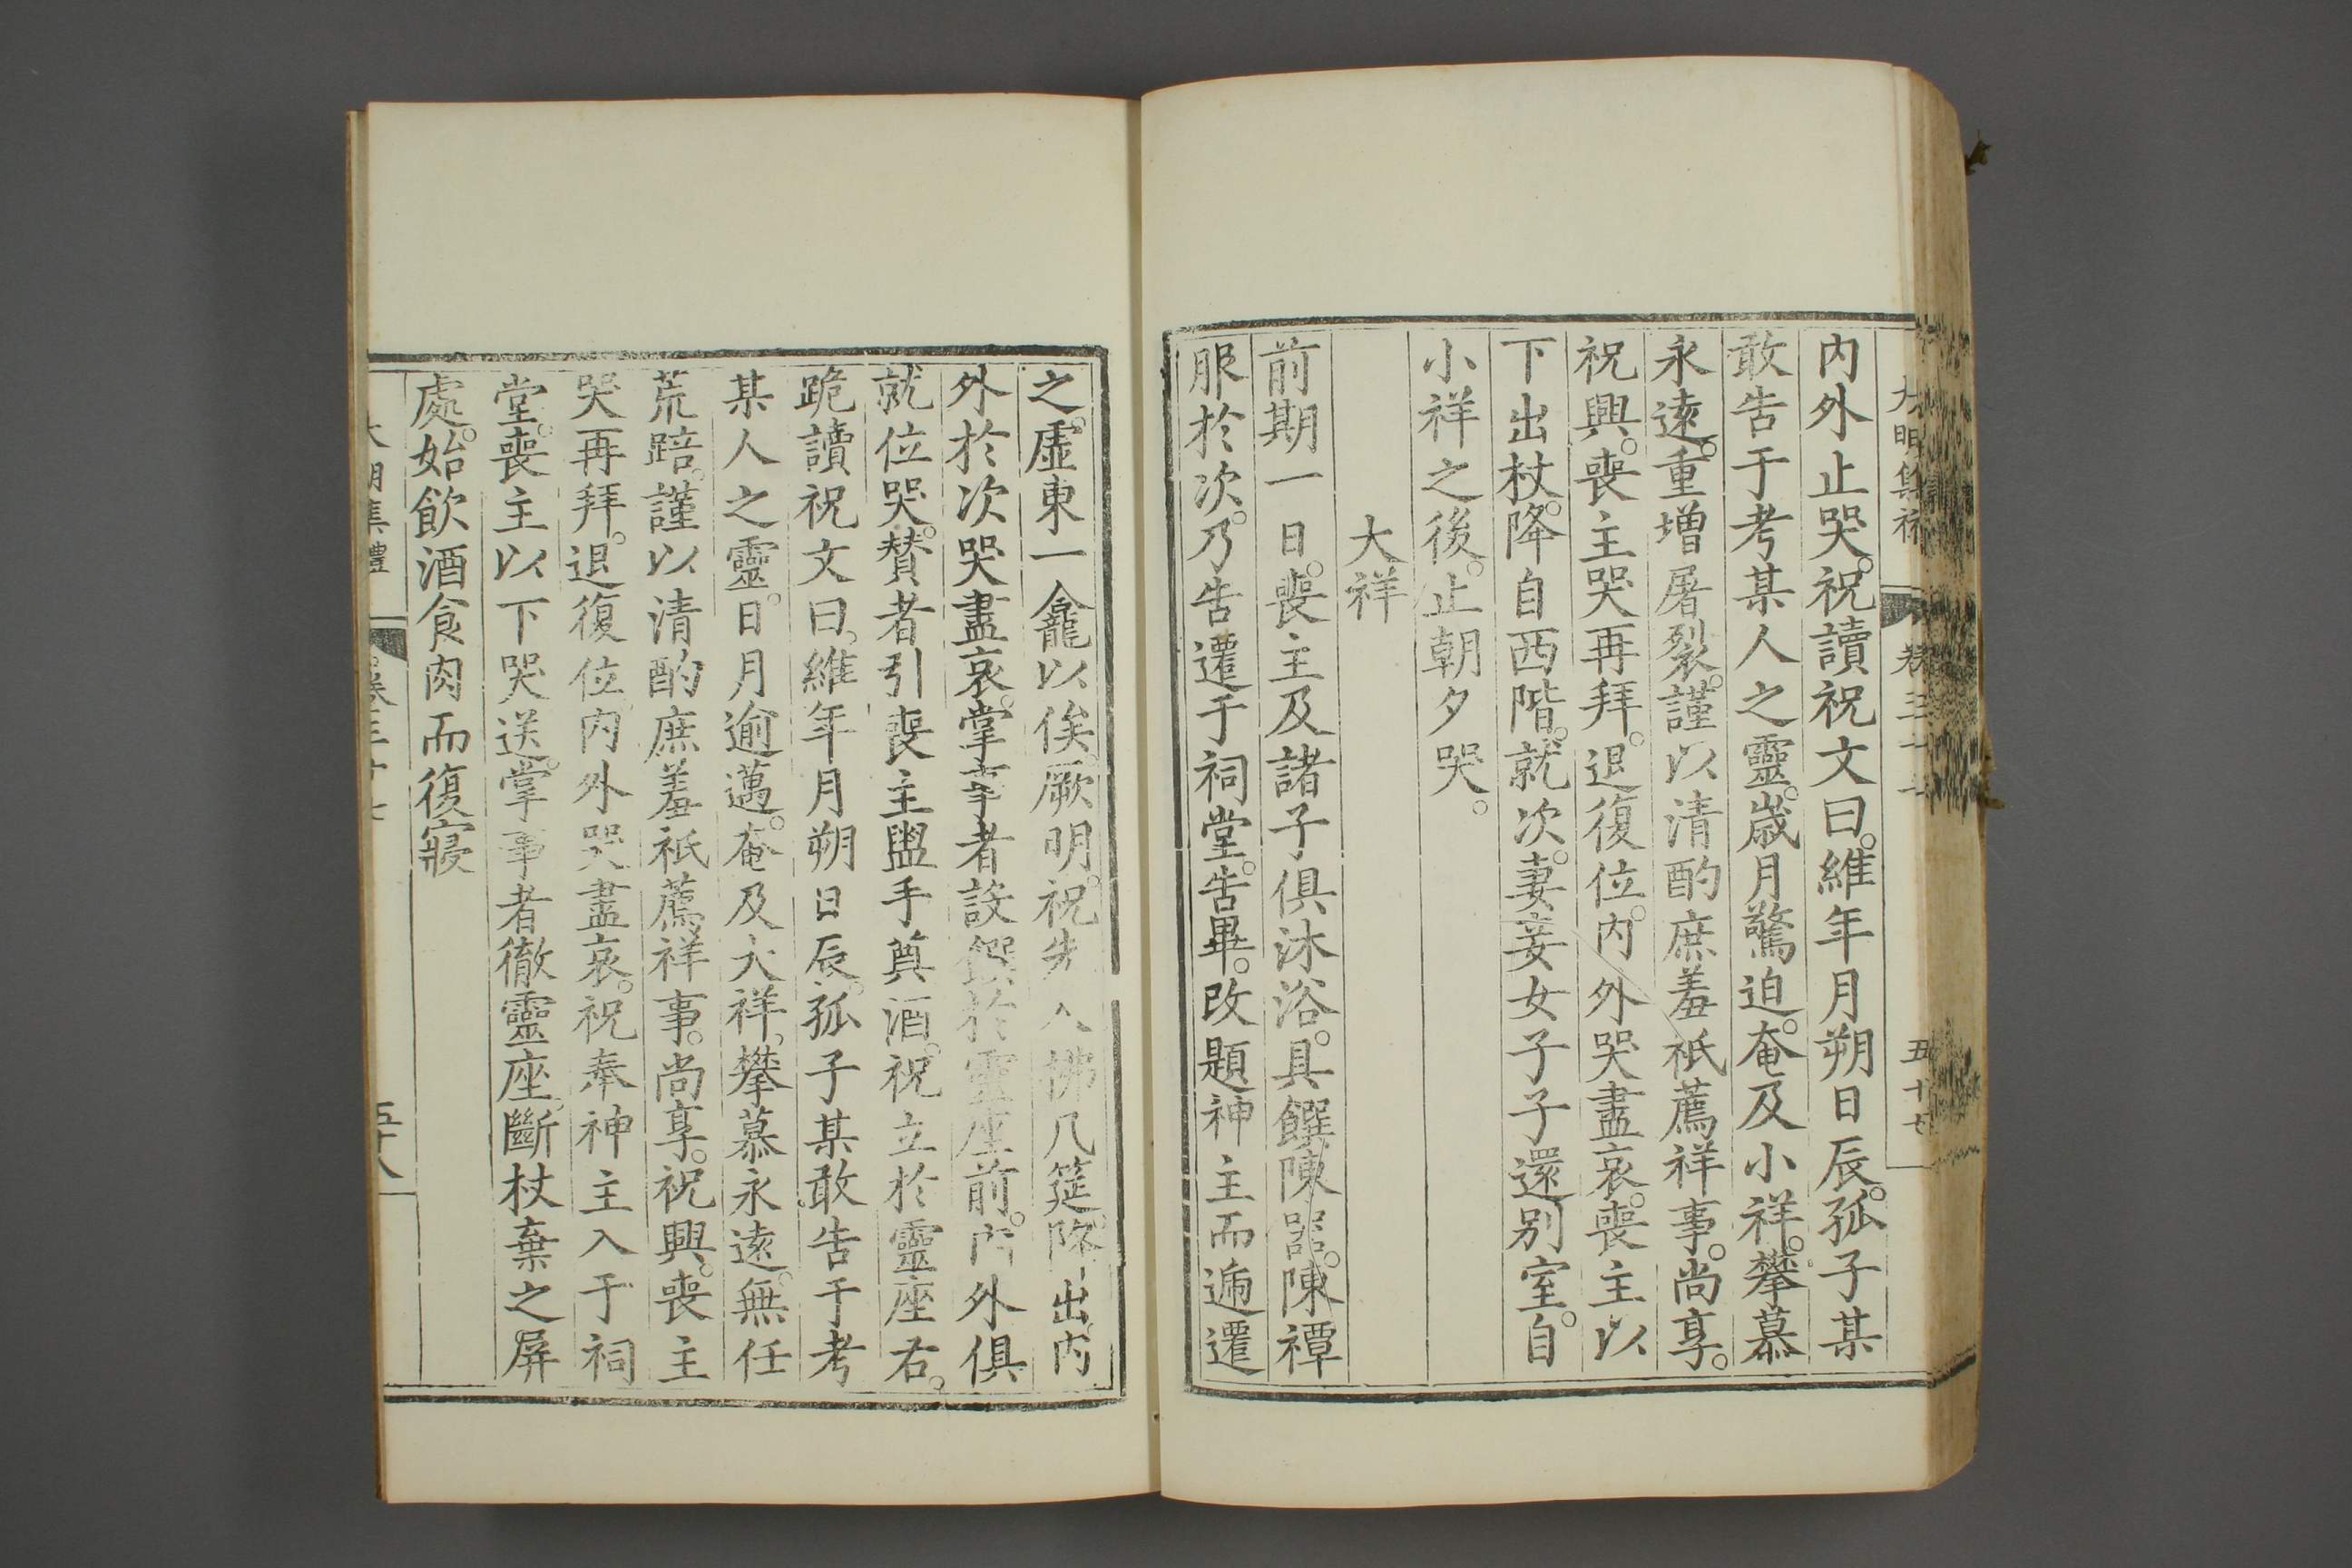 內外止哭。祝讀祝文曰。維年月朔日辰。孤子某
敢告于考某人之靈。歲月驚迫。奄及小祥。攀慕
永遠。重增屠裂。謹以清酌庶羞祇薦祥事。尚享。
祝興。喪主哭再拜。退復位。內外哭盡哀。喪主以
下出杖。降自西階。就次。妻妾女子子還别室。自
小祥之後。止朝夕哭。
大祥
前期一日。喪主及諸子俱沐浴。具饌陳器。陳禫
服於次。乃告遷于祠堂。告畢。改題神主而遞遷
大明集禮 卷三十七 五十七
之。虛東一龕以俟。厥明。祝先入拂几筵。降出。內
外於次哭盡哀。掌事者設饌於靈座前。內外俱
就位哭。賛者引喪主盥手奠酒。祝立於靈座右。
跪讀祝文曰。維年月朔日辰。孤子某敢告于考
某人之靈。日月逾邁。奄及大祥。攀慕永遠。無任
荒踣。謹以清酌庶羞祇薦祥事。尚享。祝興。喪主
哭再拜。退復位。內外哭盡哀。祝奉神主入于祠
堂。喪主以下哭送。掌事者徹靈座。斷杖棄之屏
處。始飲酒食肉而復寢
大明集禮 卷三十七 五十八